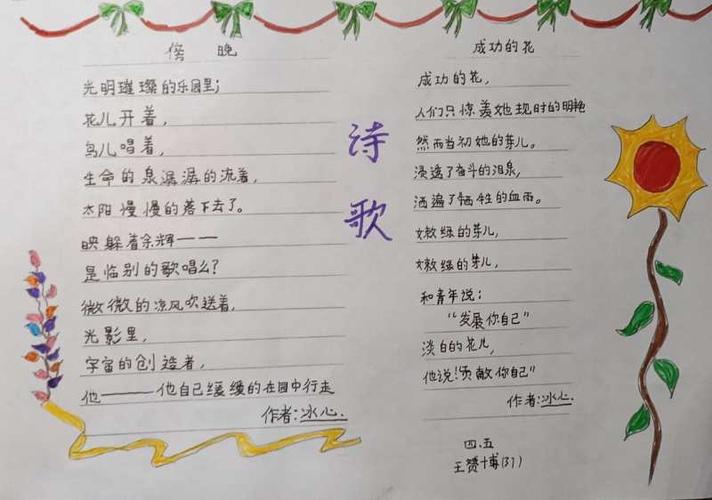 傍 晚
光明璀璨的乐园里；
花儿开着，
鸟儿唱着，
生命的泉潺潺的流着，
太阳慢慢的落下去了。
映躲着余辉——
是临别的歌唱么？
微微的凉风吹送着，
光影里，
宇宙的创造者，
他——他自己缓缓的在园中行走
作者：冰心.
诗
歌
成功的花
成功的花，
人们只惊羡她现时的明艳
然而当初她的芽儿。
浸透了奋斗的泪泉，
洒遍了牺牲的血雨。
嫩绿的芽儿，
嫩绿的芽儿，
和青年说：
“发展你自己”
淡白的花儿，
他说！贡献你自己”
作者：冰心.
四.五
王赟博(37)